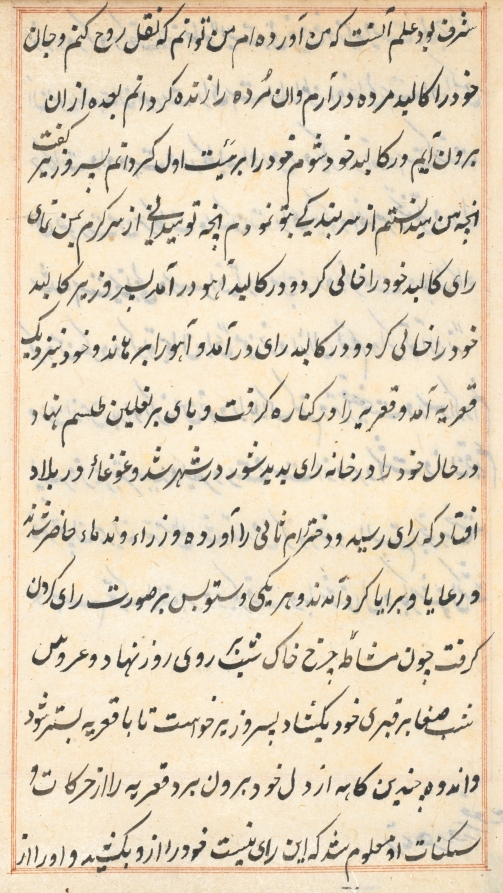 شرف بود علم آنست که من آورده ام من توانم که نقل روح کنم و جان
خود را کالبد مرده در آرم وان مُرده را زنده کردانم بعده از ان
برون آیم و در کالبد خود شوم خود را بر هیئت اول کردانم پسر وزیر گفت
انچه من میدانستم از سر بندیکی بتو نمودم انچه تو میدانی از سر کرم بمن نمای
رای کالبد خود را خالی کرد و در کالبد آهو در آمد پسر وزیر کالبد
خود را خالی کرد و در کالبد رای در آمد و آهو را برهاند و خود نیزدیک
قعریه آمد و قعریه را در کناره کرفت و پای بر نعلین طلسم نهاد
در حال خود را در خانه رای پدید شور در شهر شد و غوغاء در بلاد
افتاد که رای رسید و دختر ام ثانی را آورده وزراء و ندماء حاضر شدند
و رعایا و برایا کرد آمدند و هر یکی دستوبس بر صورت رای کردن
کرفت چون مشاطه چرخ خاک شب بر روی روز نهاد و عروس
شب بر قبری خود بکشاد پسر وزیر خواست تا با قعریه بستر شود
و اندوه چندین کاهه از دل خود برون برد قعریه را از حرکات و
سکنات او معلوم شد که این رای نیست خود را ازو بکشید و او را از